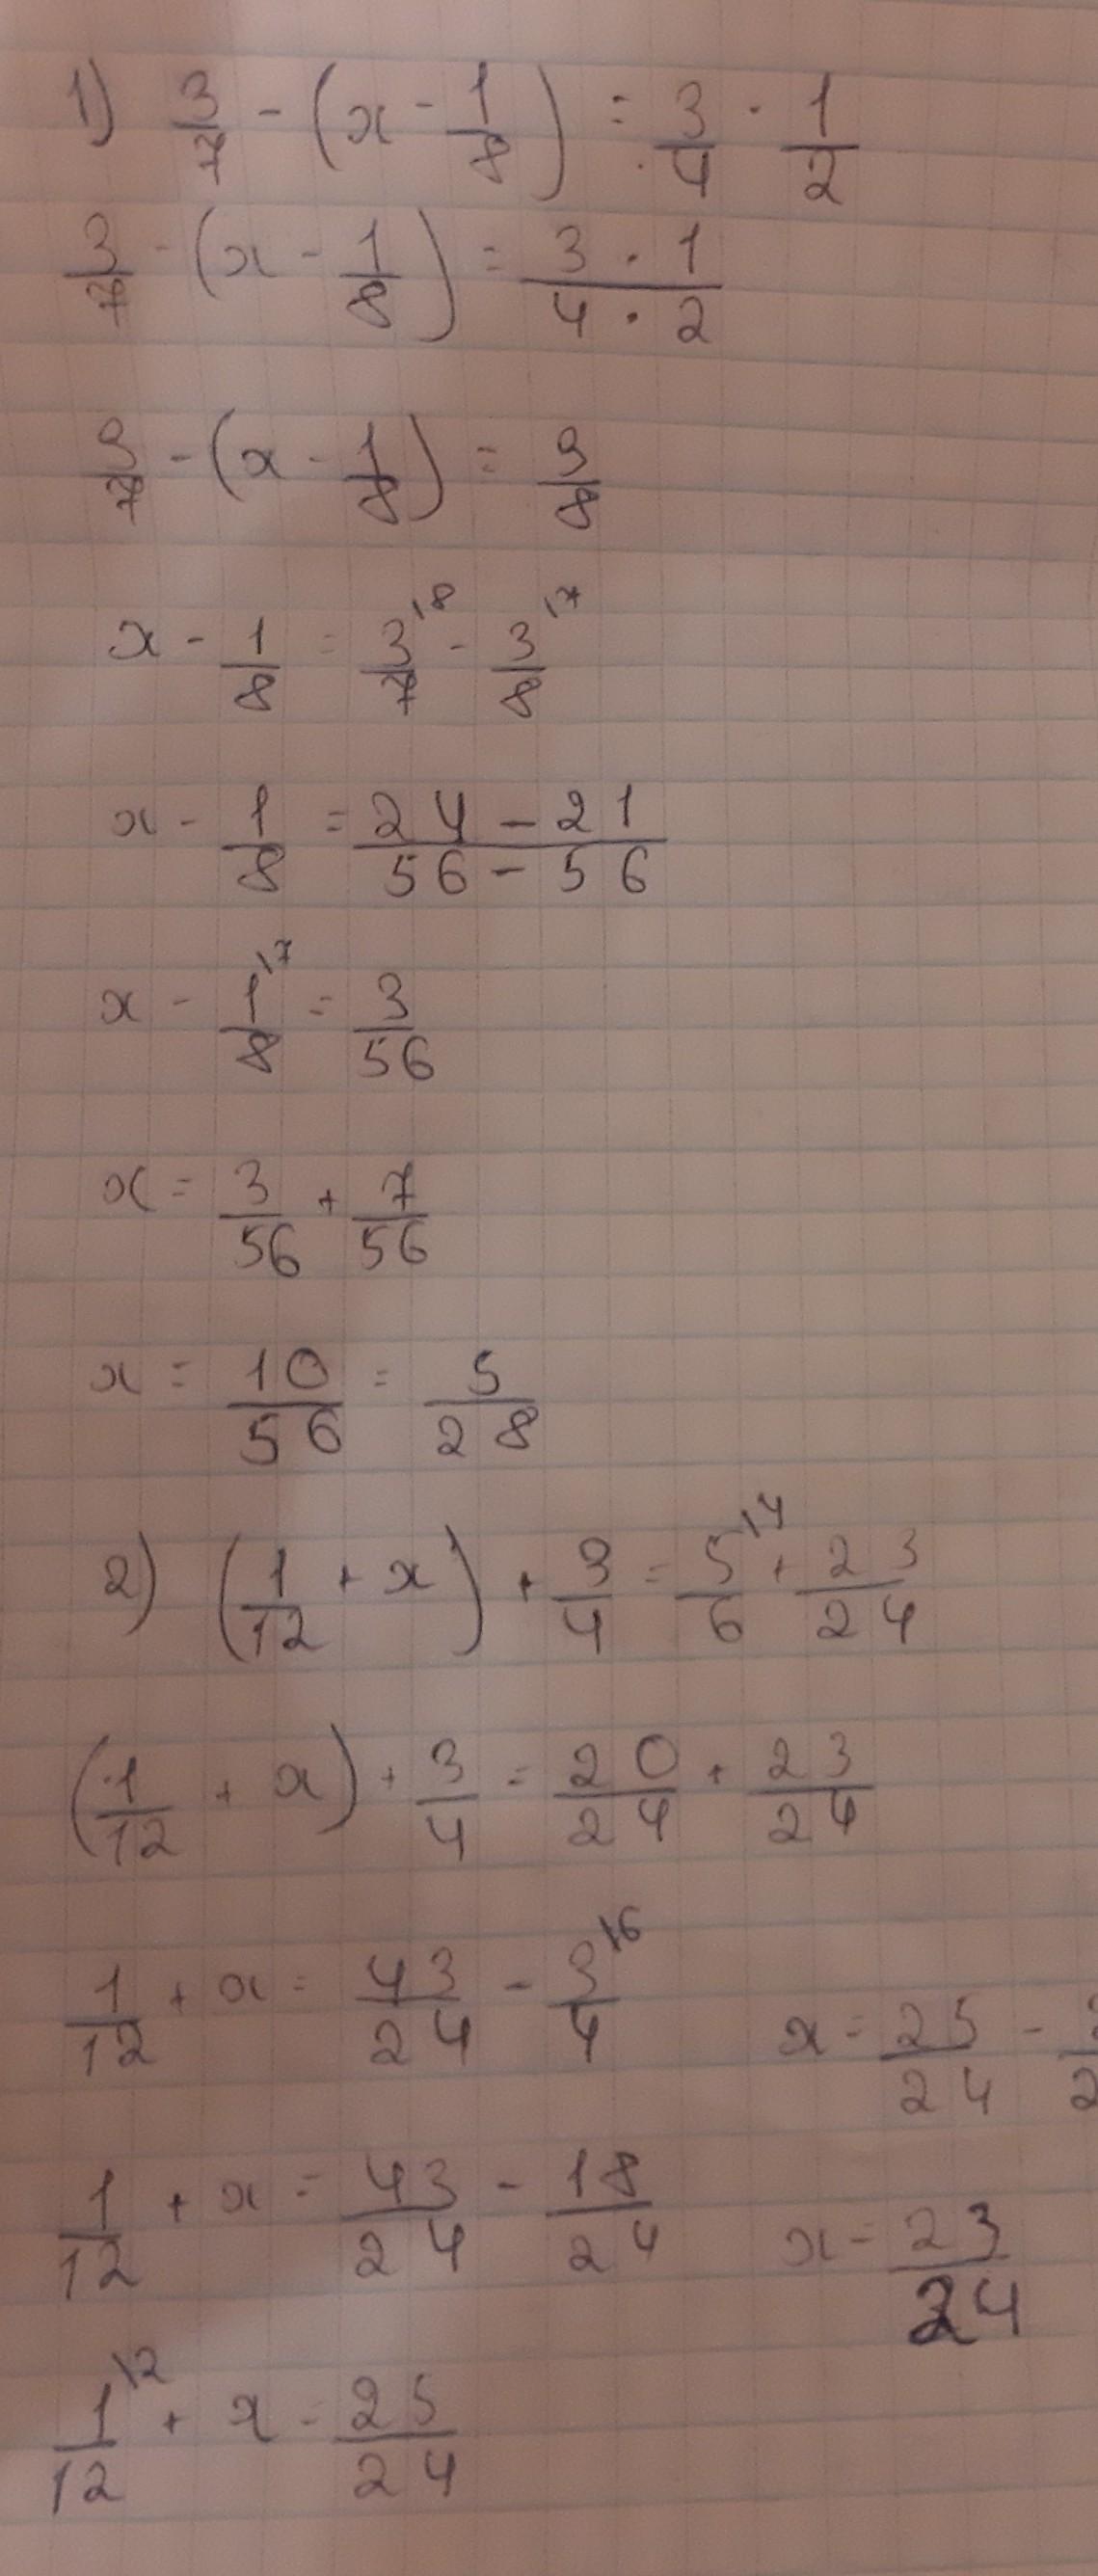 1) 3/7 - (x - 1/8) = 3/4 · 1/2
3/7 - (x - 1/8) = 3 · 1 / 4 · 2
3/7 - (x - 1/8) = 3/8
x - 1/8 = 3/7 \8 - 3/8 \7
x - 1/8 = 24 - 21 / 56 - 56
x - 1/8 \7 = 3/56
x = 3/56 + 7/56
x = 10/56 = 5/28
2) (1/12 + x) + 3/4 = 5/6 \4 + 23/24
(1/12 + x) + 3/4 = 20/24 + 23/24
1/12 + x = 43/24 - 3/4 \6
1/12 + x = 43/24 - 18/24
1/12 \2 + x = 25/24
x = 25/24 -
x = 23/24